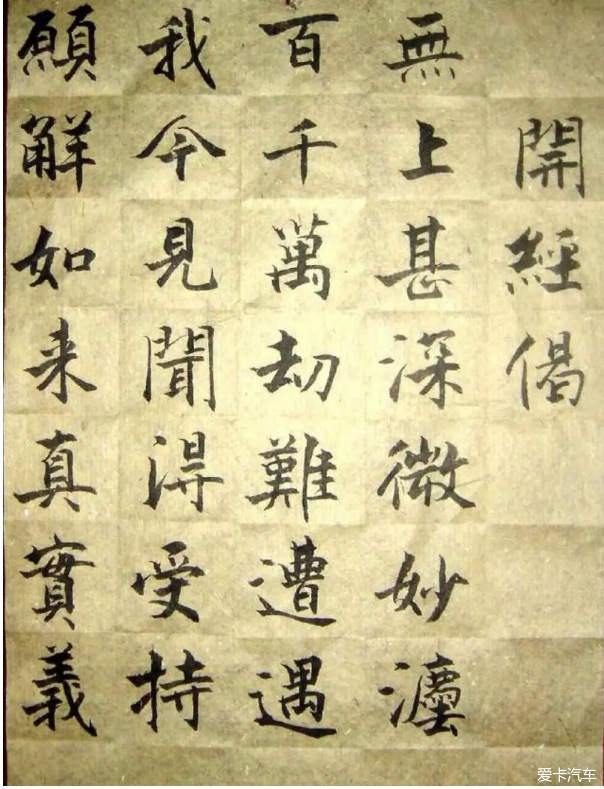 開經偈
無上甚深微妙灋
百千萬劫難遭遇
我今見聞得受持
願解如来真實義
爱卡汽车